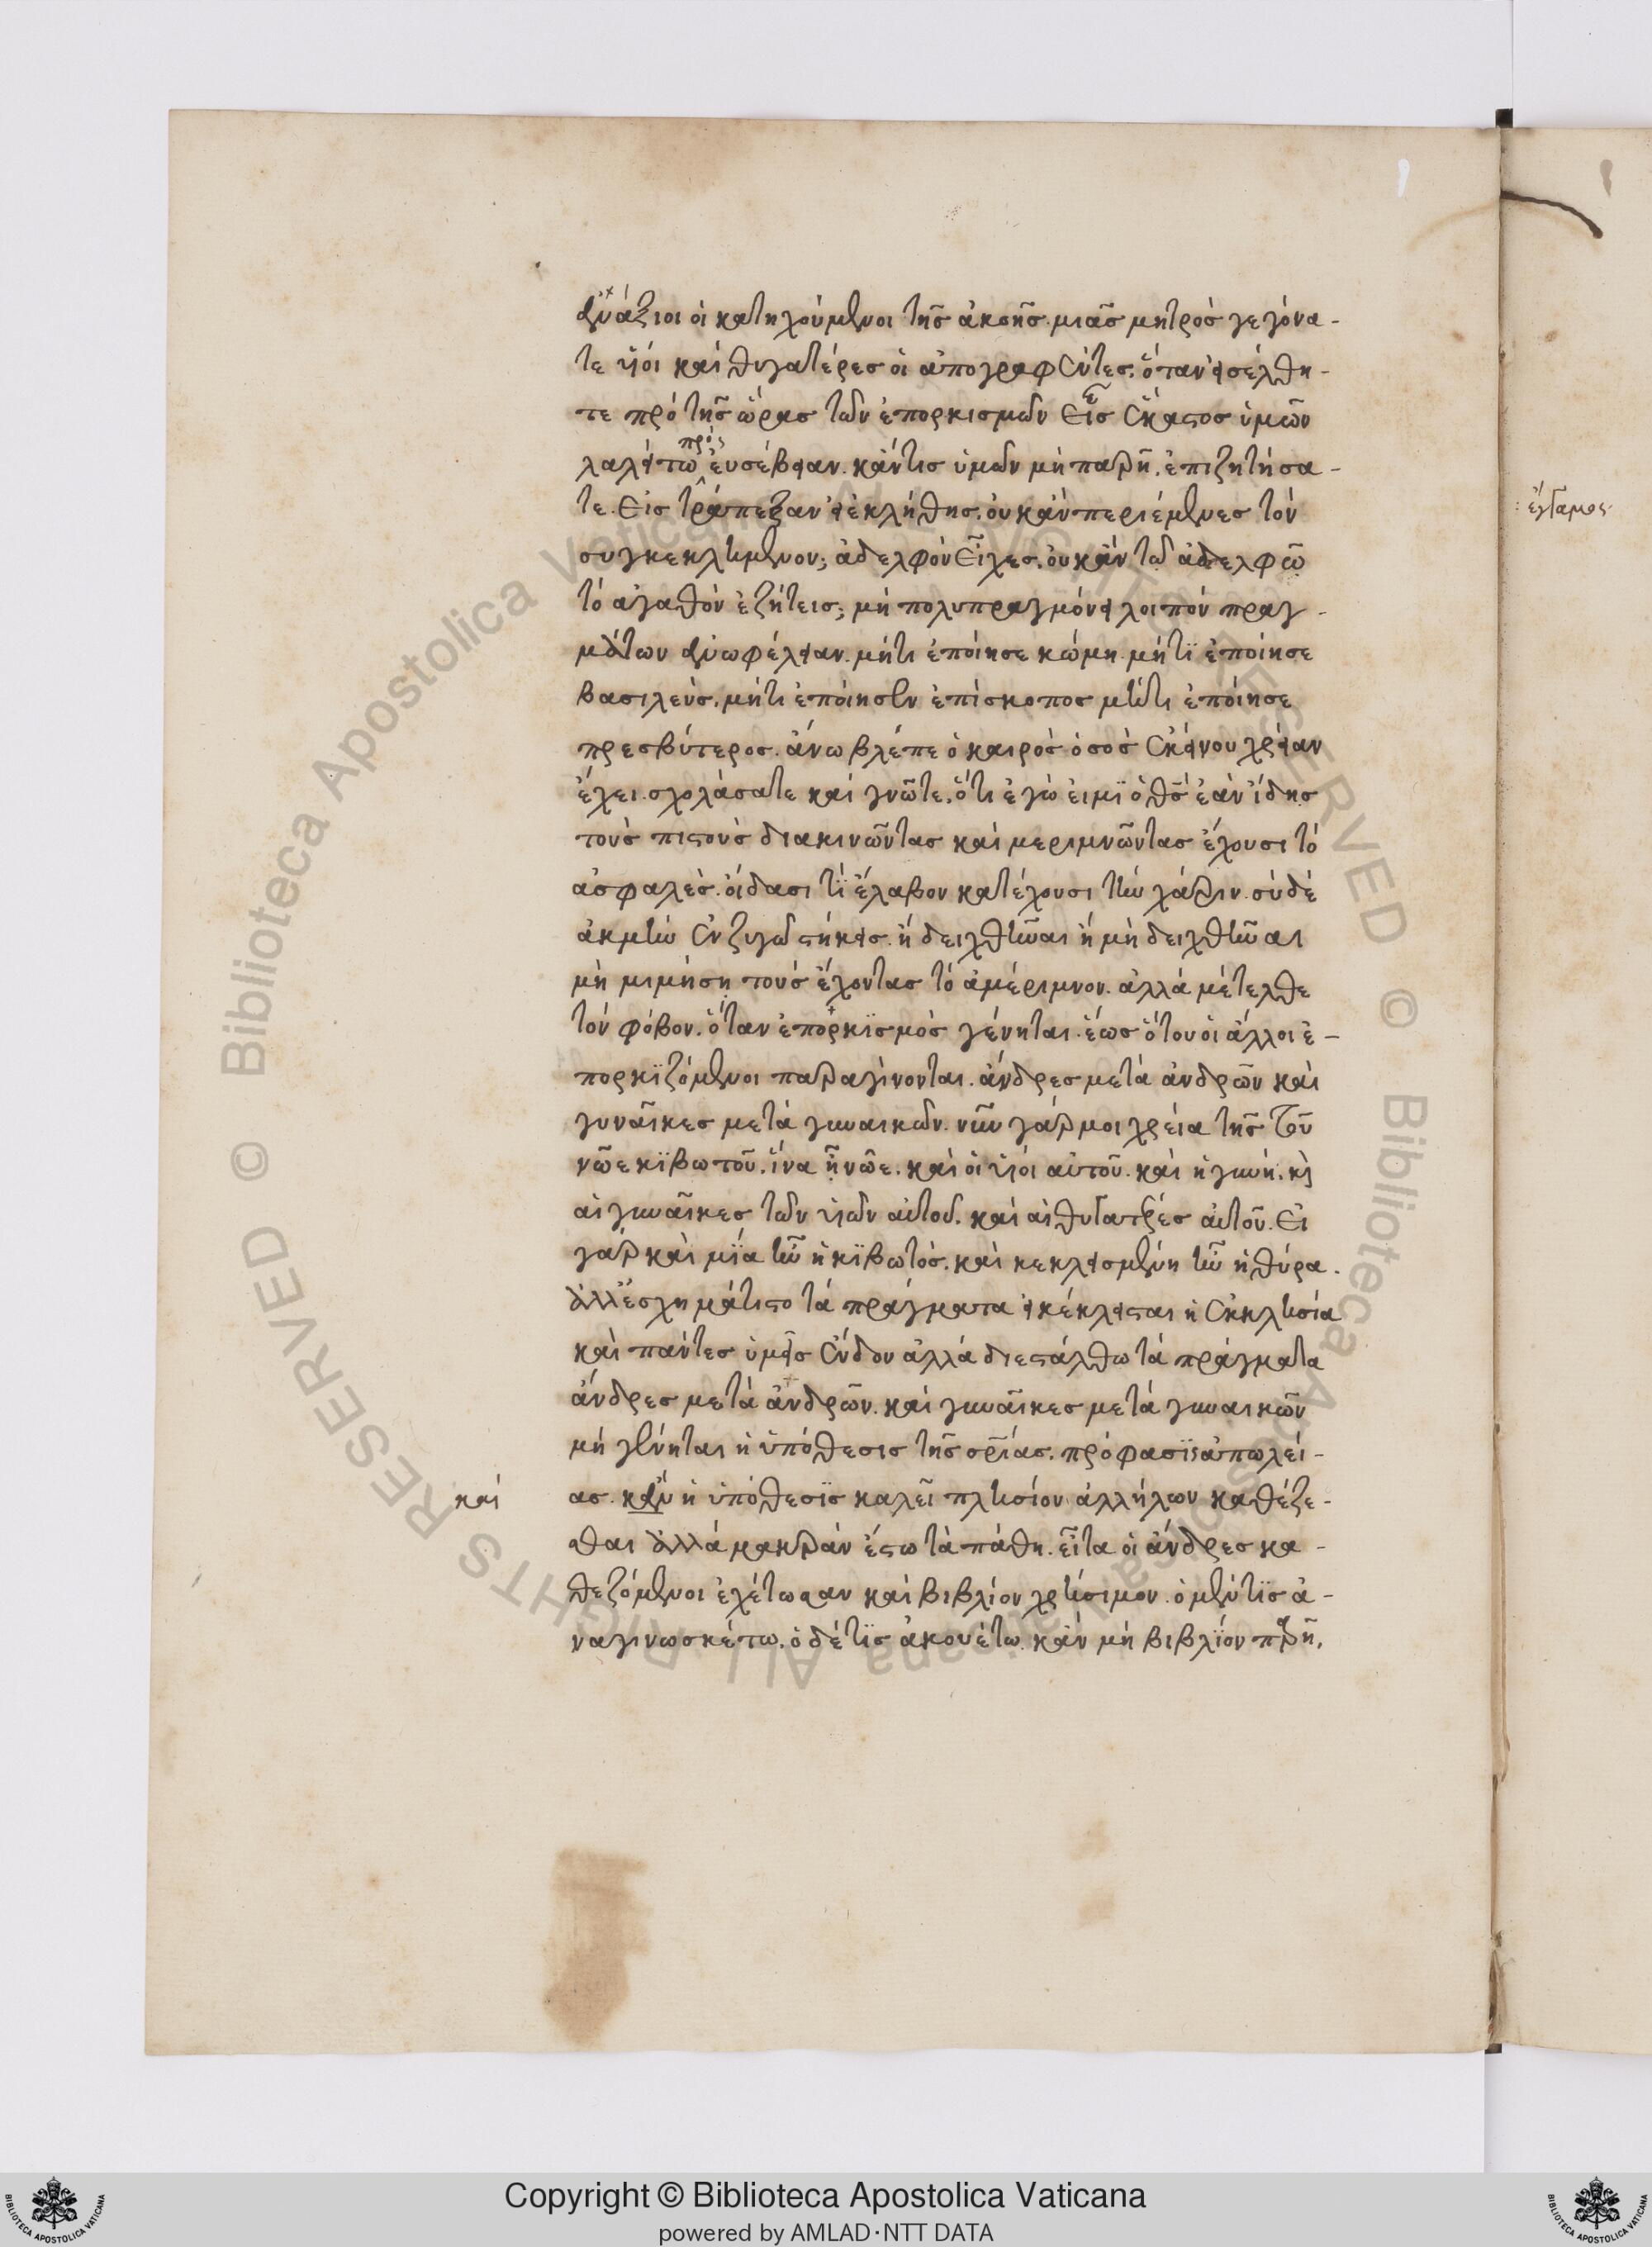 ἀνάξιοι οἱ κατηχούμενοι τῆς ἀκοῆς. μιᾶς μητρὸς γεγόνα-
τε υἱοὶ καὶ θυγατέρες οἱ ἀπογραφέντες. ὅταν εἰσέλθη-
τε πρὸ τῆς ὥρας τῶν ἐπορκισμῶν εἷς ἕκαστος ὑμῶν
λαλείτω πρὸς εὐσέβειαν. κἄν τις ὑμῶν μὴ παρῇ. ἐπιζητήσα-
τε. εἰς τράπεζαν εἰ ἐκλήθης. οὐκ ἂν περιέμενες τὸν
συγκεκλημένον; ἀδελφὸν εἶχες. οὐκ ἂν τῷ ἀδελφῷ
τὸ ἀγαθὸν ἐζήτεις; μὴ πολυπραγμόνει λοιπὸν πραγ-
μάτων ἀνωφέλειαν. μή τι ἐποίησε κώμη. μή τϊ ἐποίησε
βασιλεύς. μή τι ἐποίησεν ἐπίσκοπος μή τι ἐποίησε
πρεσβύτερος. ἄνω βλέπε ὁ καιρὸς ὁ σὸς ἐκείνου χρείαν
ἔχει. σχολάσατε καὶ γνῶτε. ὅτι ἐγώ εἰμϊ ὁ θς ἐὰν ἴδῃς
τοὺς πιστοὺς διακινῶντας καὶ μεριμνῶντας ἔχουσι τὸ
ἀσφαλές. οἴδασι τϊ ἔλαβον κατέχουσι τὴν χάριν. σὺ δὲ
ἀκμὴν ἐν ζυγῷ στήκεις. ἢ δειχθῆναι ἢ μὴ δειχθῆναι
μὴ μιμήσῃ τοὺς ἔχοντας τὸ ἀμέριμνον. ἀλλὰ μέτελθε
τὸν φόβον. ὅταν ἐπορκϊσμὸς γένηται. ἕως ὅτου οἱ ἄλλοι ἐ-
πορκϊζόμενοι παραγίνονται. ἄνδρες μετὰ ἀνδρῶν καὶ
γυναῖκες μετὰ γυναικῶν. νῦν γάρ μοι χρεία τῆς τοῦ
νῶε κϊβωτοῦ. ἵνα ᾖ νῶε. καὶ οἱ υἱοὶ αὐτοῦ. καὶ ἡ γυνή. κὶ
αἱ γυναῖκες τῶν υἱῶν αὐτοῦ. καὶ αἱ θυγατρές αὐτοῦ. εἰ
γὰρ καὶ μϊα ἦν ἡ κϊβωτός. καὶ κεκλεισμένη ἦν ἡ θύρα.
ἀλλ' ἐσχημάτιστο τὰ πράγματα εἰ κέκλεισται ἡ ἐκκλησία
καὶ πάντες ὑμεῖς ἔνδον ἀλλὰ διεστάλθω τὰ πράγματα
ἄνδρες μετὰ ἀνδρῶν. καὶ γυναῖκες μετὰ γυναικῶν
μὴ γένηται ἡ ὑπόθεσις τῆς σρίας. πρόφασϊς ἀπωλεί-
καὶ
ας. κἂν ἡ ὑπόθεσϊς καλεῖ πλησίον ἀλλήλων καθέζε-
σθαι ἀλλὰ μακρὰν ἔστω τὰ πάθη. εἶτα οἱ ἄνδρες κα-
θεζόμενοι ἐχέτωσαν καὶ βιβλίον χρήσιμον. ὁ μέν τϊς ἀ-
ναγινωσκέτω. ὁ δέ τϊς ἀκουέτω. κἂν μὴ βιβλϊον παρῇ.
Copyright © Biblioteca Apostolica Vaticana
powered by AMLAD·NTT DATA